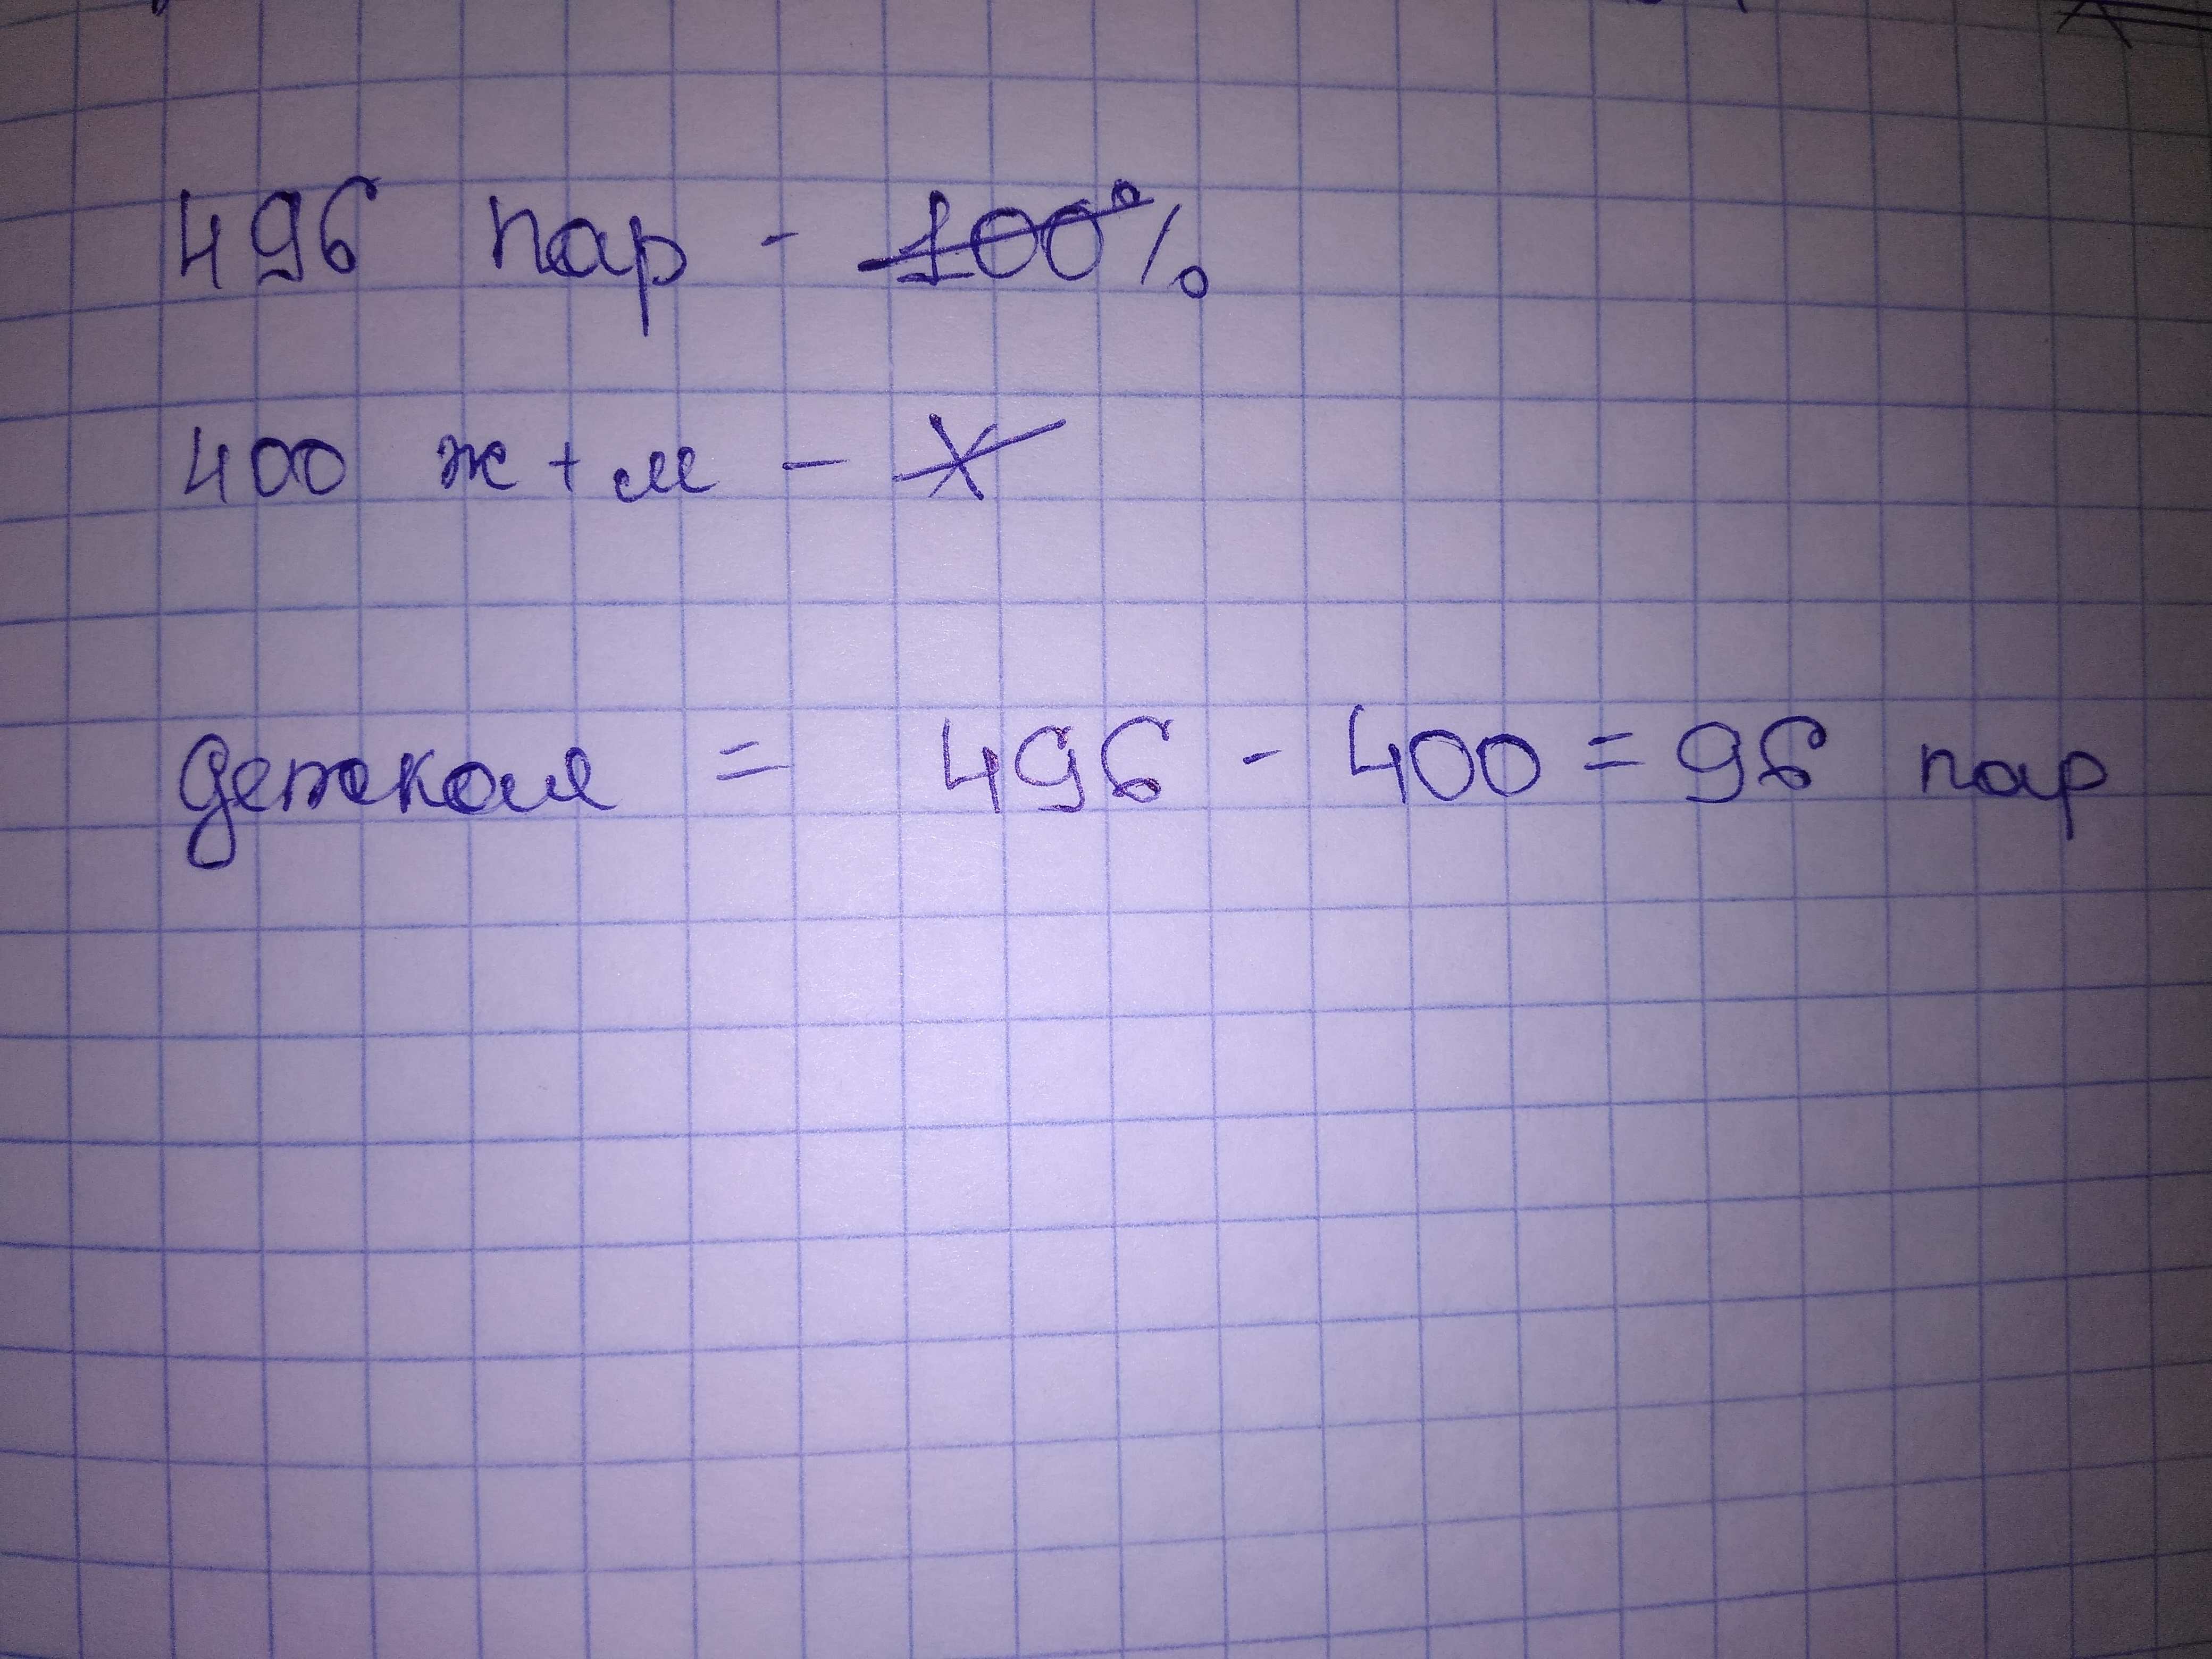 496 пар - 100%
400 ж + м - х
детская = 496 - 400 = 96 пар